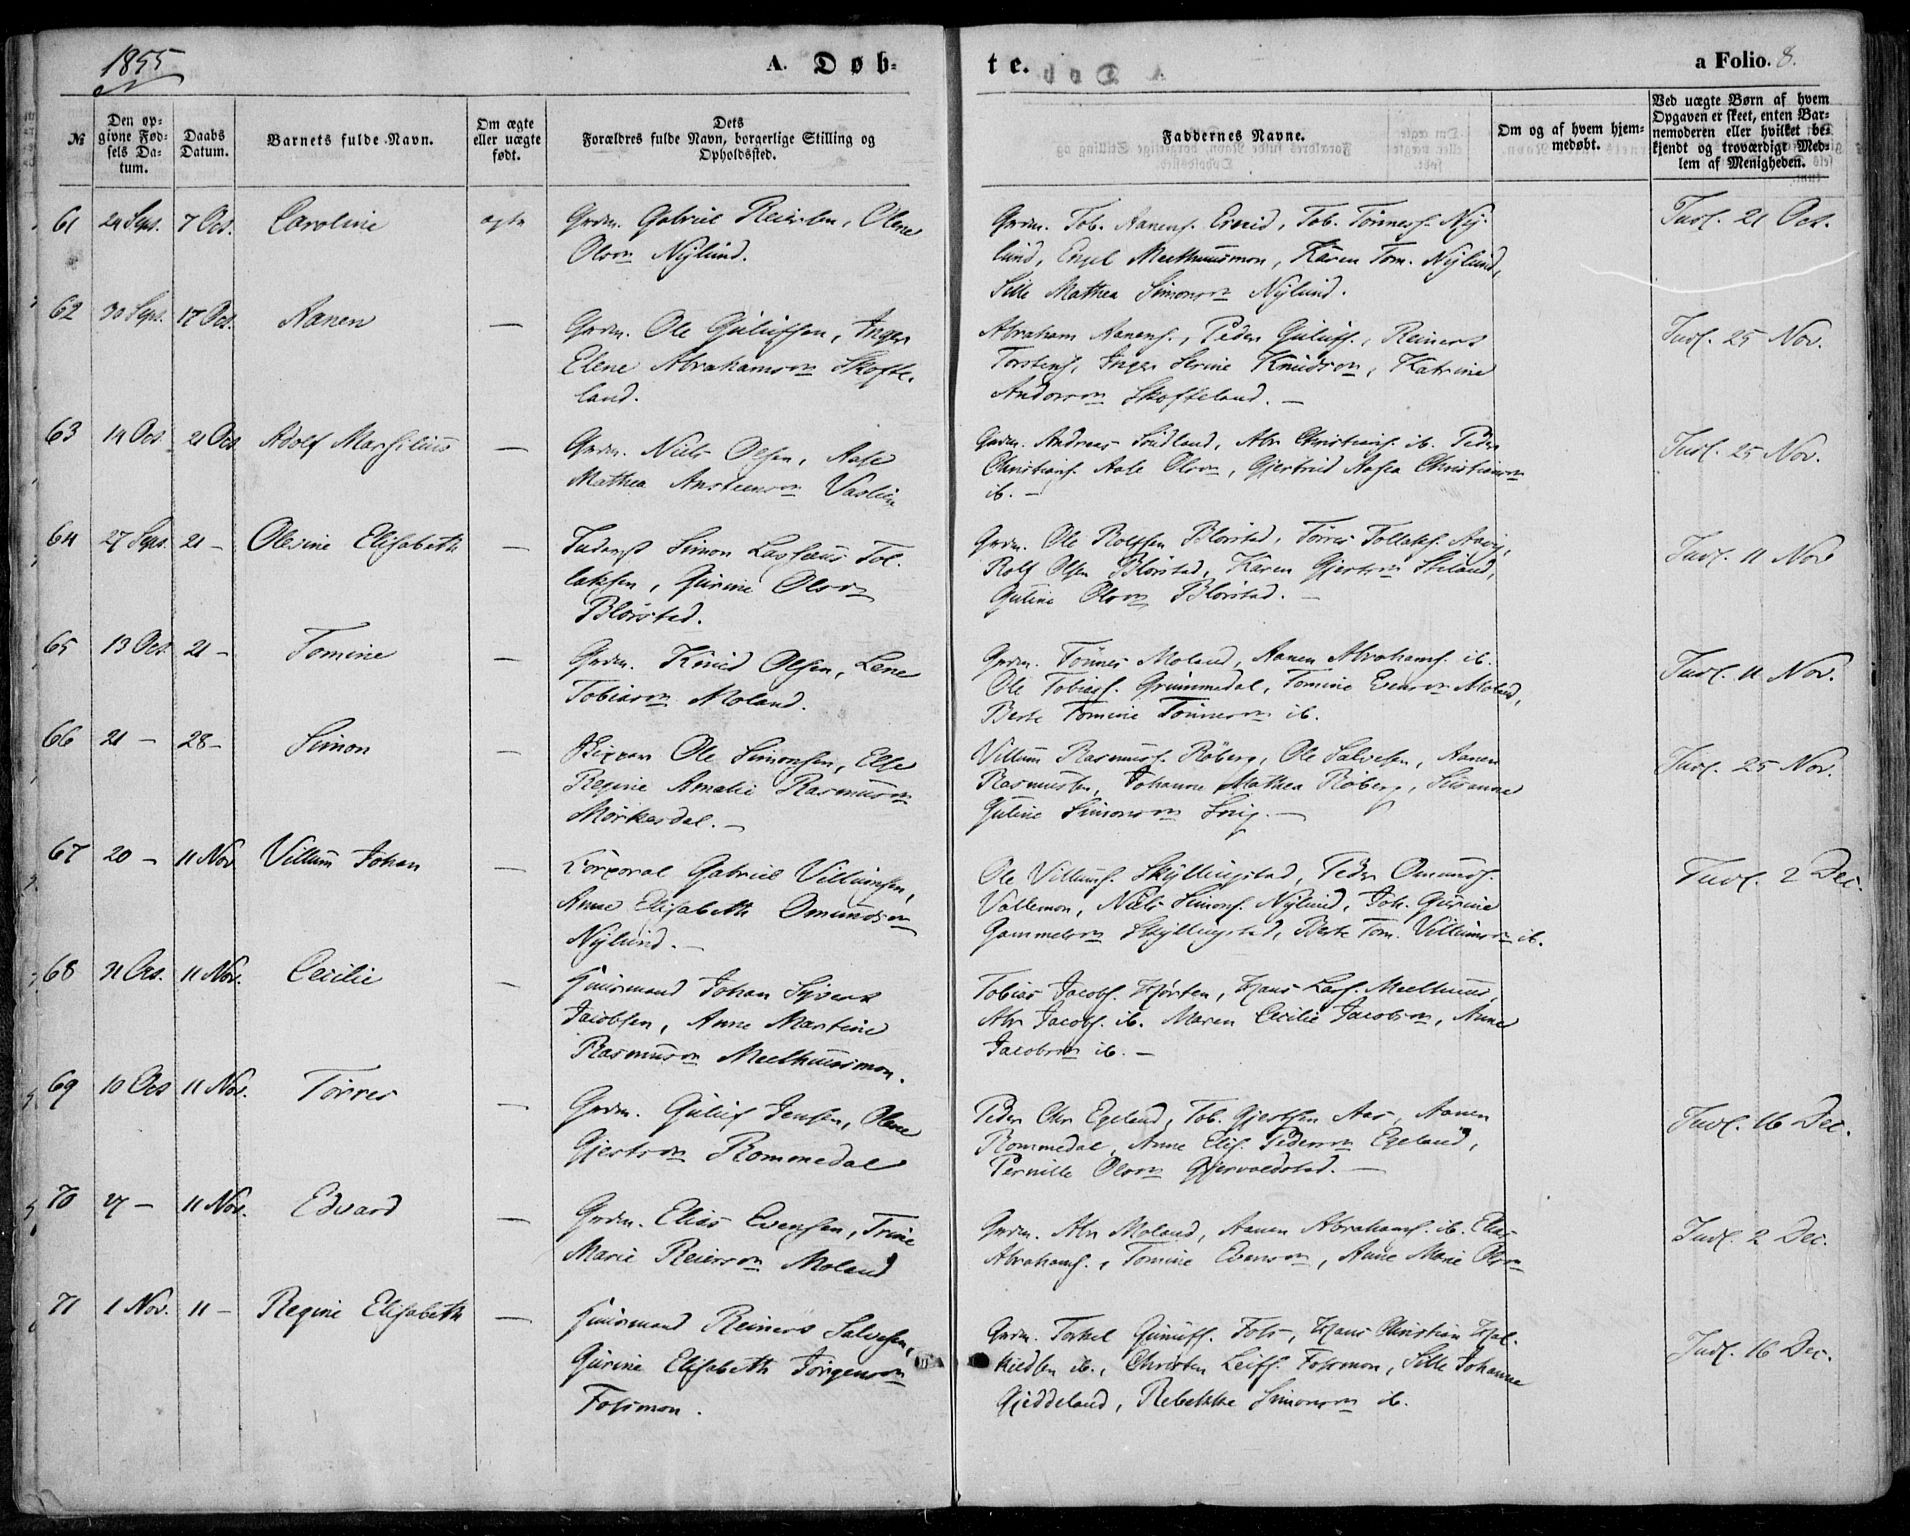 1855
A. Døb-
te.
a Folio. 8.
№
Den op-
givne Fød-
sels Da-
tum.
Daabs
Datum.
Barnets fulde Navn.
Om ægte
eller uægte
født.
Dets
Forældres fulde Navn, borgerlige Stilling og
Opholdssted.
Faddernes Navne.
Om og af hvem hjem-
medøbt.
Ved uægte Børn af hvem
Opgaven er skeet, enten Bar-
nemoderen eller hvilket be-
kjendt og troværdigt Med-
lem af Menigheden.
61 24 Sept. 7 Oct. Caroline ægte
Grdm. Gabriel Reiersen, Olene
Olsdn Nylund.
Grdm. Tob. Aanens. Tob. Tønness. Ny-
lund, Engel Meelhuusmon, Karen Tom. Nylund,
Sille Mathea Simonsdn Nylund.
Indl. 21 Oct.
62 30 Sept. 17 Oct. Aanen —
Grdm. Ole Guliufsen, Inger
Elene Abrahamsdn Skofte-
land.
Abraham Aanens., Peder Guliufs., Reinert
Torstens, Inger Serine Knudsdn, Katrine
Andersdn Skofteland. —
Indl. 25 Nov.
63 14 Oct. 21 Oct Adolf Marsilius —
Grdm. Niels Olsen, Aase
Mathea Anstensdn Vaslien
Grdm. Andreas Sudland, Abr Christians. ib. Peder
Christians. Aale Olsdn, Gjertrud Aasea Christiansdn
ib. —
Indl. 25 Nov.
64 27 Sept. 21 — Olevine Elisabeth —
Simon Tol-
laksen, Gurine Olsdn
Blørstad.
Grdm. Ole Rolfsen Blørstad, Tørres Tollaks.
Rolf Olsen Blørstad, Karen Gjertsdn
Guline Olsdn Blørstad. —
Indl. 11 Nov
65 13 Oct. 21 — Tomine —
Grdm. Knud Olsen, Lene
Tobiasdn Moland.
Grdm. Tønnes Moland, Aanen Abrahams. ib.
Ole Tobias. Grummedal, Tomine Evensdn Moland,
Berte Tomine Tønnesdn ib.
Indl. 11 Nov.
66 21 — 28 — Simon —
Skipper Ole Simonsen, Else
Regine Amalie Rasmusdn
Mørkesdal. —
Villum Rasmuss. Røberg, Ole Salvesen, Aanen
Rasmussen, Johanne Mathea Røberg, Susanne
Guline Simonsdn
Indl. 25 Nov.
67 20 — 11 Nov Villum Johan —
Corporal Gabriel Villumsen,
Anne Elisabeth Omundsdn
Nylund. —
Ole Villums. Skyllingstad, Peder Omunds.
Vallemon, Niels Simons. Nylund, Joh. Gurine
Gammelsdn Skyllingstad, Berte Tom. Villumsdn ib.
Indl. 2 Dec.
68 31 Oct. 11 Nov. Cecilie —
Huusmand Johan Syvert
Jacobsen, Anne Martine
Rasmusdn Meelhuusmon.
Tobias Jacobs. Hjorten, Hans Lars. Meelhuus
Abr Jacobs. ib. Maren Cecilie Jacobsdn, Anne
Jacobsdn ib. —
69 10 Oct 11 Nov. Tørres —
Grdm. Guliuf Jensen, Olene
Gjertsdn Rommedal
Peder Chr Egeland, Tob. Gjertsen Aas, Aanen
Rommedal, Anne Elis. Pedersdn Egeland,
Pernille Olsdn Gjervoldstad. —
Indl. 16 Dec.
70 27 — 11 Nov. Edvard —
Grdm. Elias Evensen, Trine
Marie Reiersdn Moland
Grdm. Abr Moland, Aanen Abrahams. ib. Elias
Abrahams., Tomine Evensdn, Anne Marie Olsdn
Indl. 2 Dec.
71 1 Nov. 11 — Regine Elisabeth —
Huusmand Reinert Salvesen,
Gurine Elisabeth Jørgensdn
Fossmon.
Grdm. Torkel Gunufs. Foss, Hans Christian
ib., Christen Leifs. Fossmon, Sille Johanne
Gjeddeland, Rebekke Simonsdn ib.
Indl. 16 Dec.